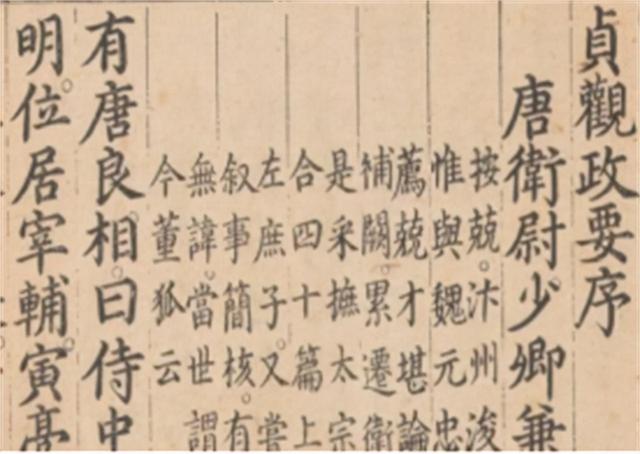 貞觀政要序
唐衛尉少卿兼
按兢汴州浚
惟與魏元忠
薦兢才堪論
補闕累遷衛
是采摭太宗
合四十篇上
左庶子又嘗
叙事簡核有
無諱當世謂
今董狐云
有唐良相曰侍中
明位居宰輔寅亮